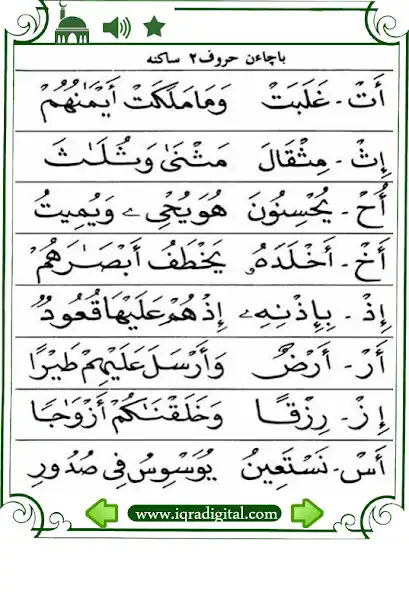 باچاءن حروف٢ ساکنه
أَتْ - غَلَبَتْ وَمَامَلَكَتْ أَيْمَٰنُهُمْ
إِثْ - مِثْقَالَ مَثْنَىٰ وَثُلَٰثَ
أُحْ - يُحْسِنُونَ هُوَيُحْيِۦ وَيُمِيتُ
أَخْ - أَخْلَدَهُۥ يَخْطَفُ أَبْصَٰرَهُمْ
إِذْ - بِإِذْنِهِۦ إِذْهُمْ عَلَيْهَاقُعُودٌ
أَرْ - أَرْضٌ وَأَرْسَلَ عَلَيْهِمْ طَيْرًا
إِزْ - رِزْقًا وَخَلَقْنَٰكُمْ أَزْوَٰجًا
أَسْ - نَسْتَعِينُ يُوَسْوِسُ فِى صُدُورِ
www.iqradigital.com